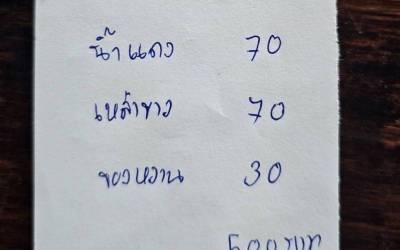 น้ำแดง 70
เหล้าขาว 70
ของหวาน 30
500 บาท